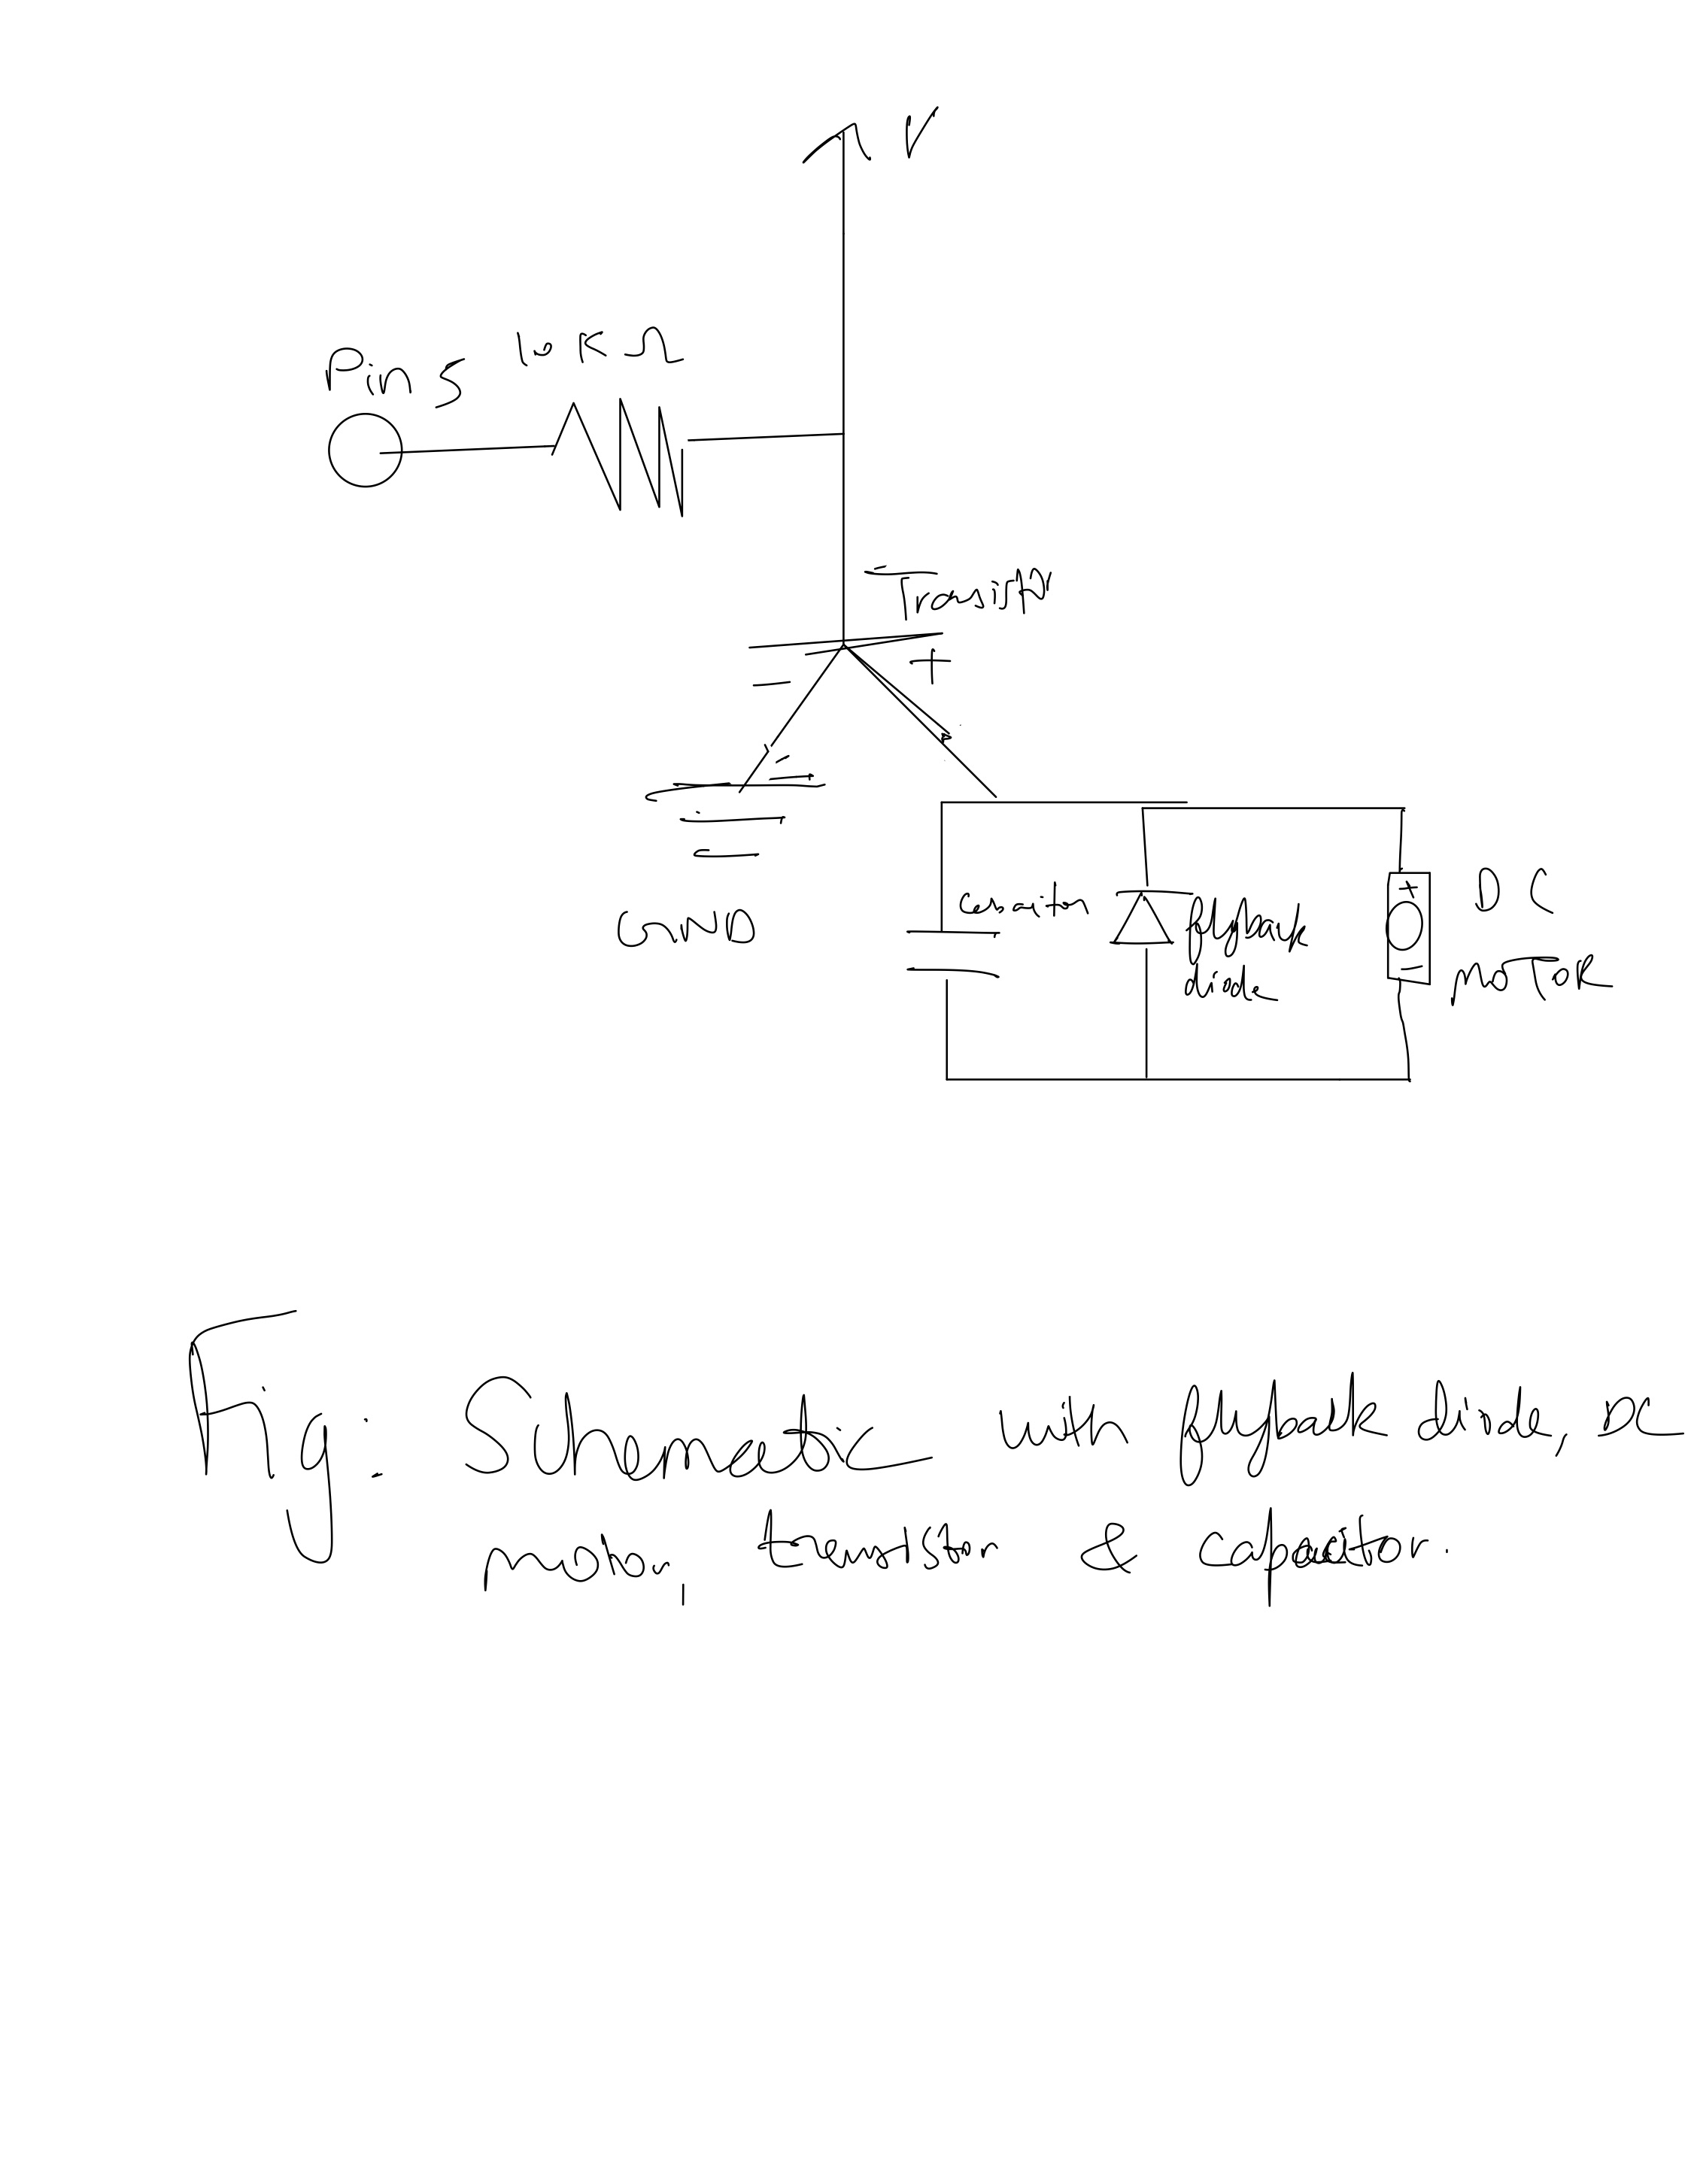 V
Pin 5 10K Ω
Transistor
+
-
GND
Capacitor
flyback
diode
+
-
DC
MOTOR
Fig: Schematic with flyback diode, DC
motor, transistor & capacitor.